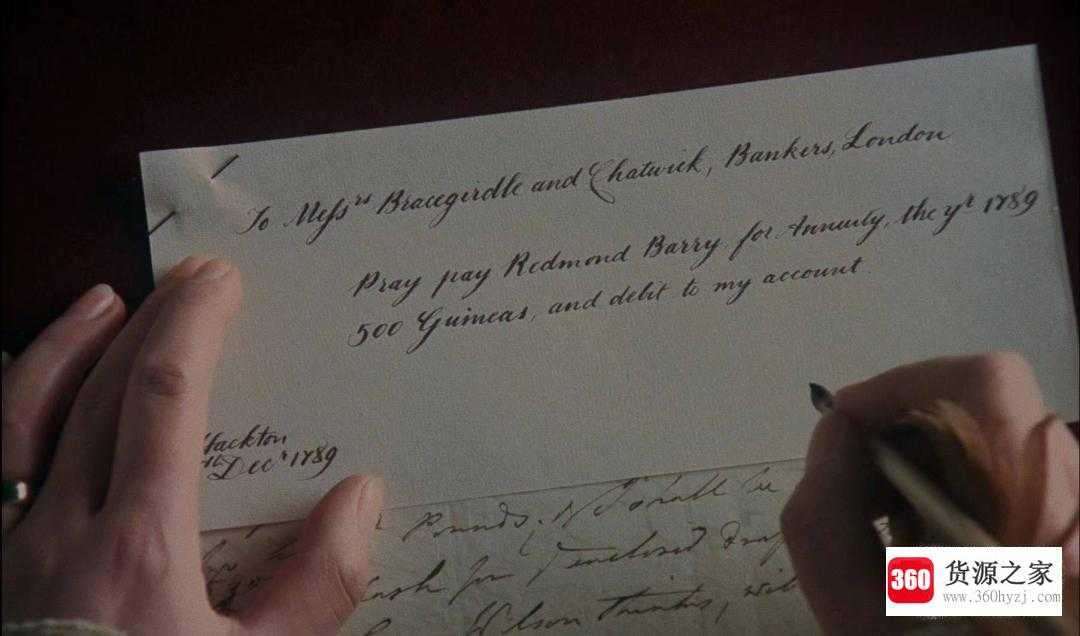 To Mefsrs Bracegirdle and Chatwick, Bankers, London
Pray pay Redmond Barry for Annuity, the yr 1789
500 Guineas, and debit to my account.
Hackton
Decr 1789
Pounds; I shall be
for enclosed
thinks,
360 货源之家
www.360hyzj.com